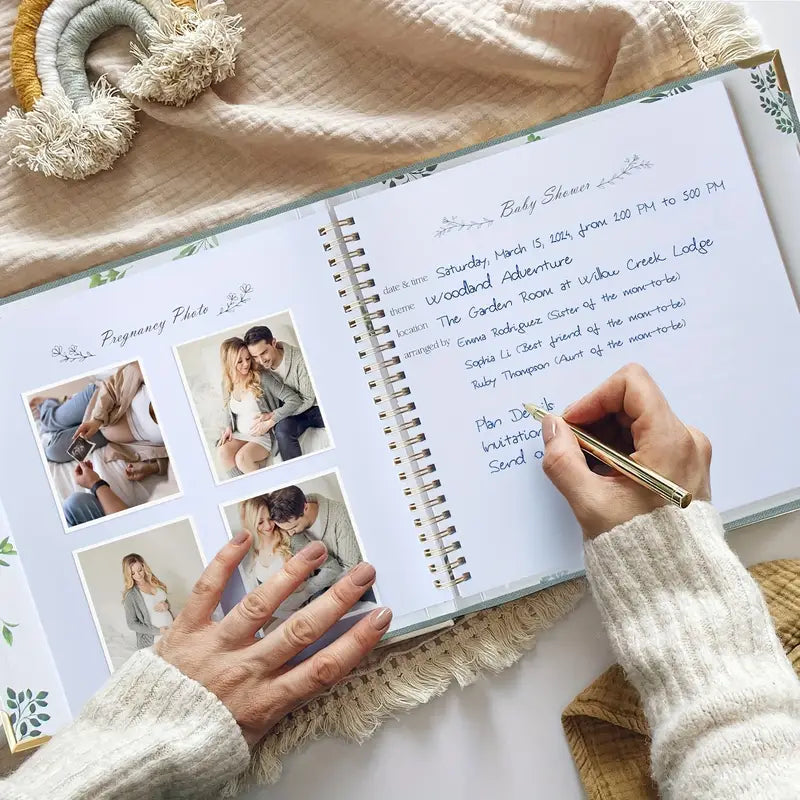 Pregnancy Photo
Baby Shower
date & time Saturday, March 15, 2024, from 2:00 PM to 5:00 PM
theme Woodland Adventure
location The Garden Room at Willow Creek Lodge
arranged by Emma Rodriguez (Sister of the mom-to-be)
Sophia Li (Best friend of the mom-to-be)
Ruby Thompson (Aunt of the mom-to-be)
Plan Details
Invitation
Send